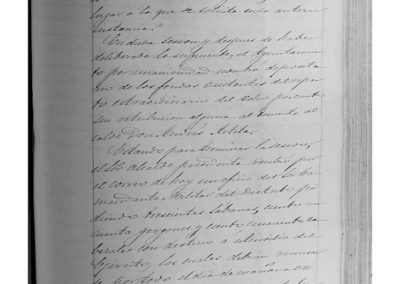 lugar á lo que se solicita en la anterior
instancia."
En dicha sesion y despues de haber
deliberado lo suficiente, el Ayuntamien
to por unanimidad nombró deposita
rio de los fondos existentes del repar
to extraordinario del ocho por ciento
sin retribucion alguna al
calde Don Andrés
Estando para terminar la sesion,
el Sor. Alcalde presidente recibió por
el correo de hoy un oficio del Sor. Co
mandante Militar del distrito pi
diendo trescientas sabanas, ciento cin
cuenta gergones y ciento cincuenta ca
bezales con destino a utensilio del
Ejército, los cuales deberan remesar
se por todo el dia de mañana en